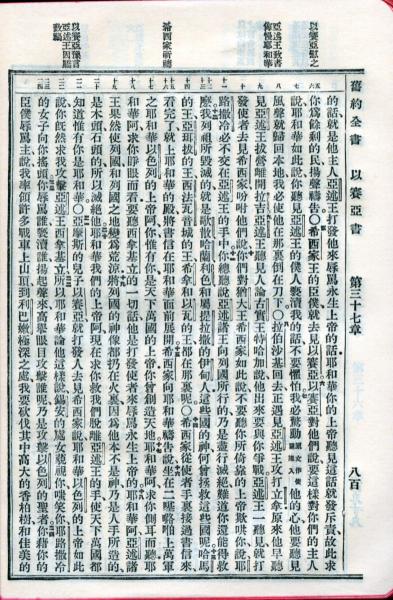 以賽亞慰之
亞述王致書
侮慢耶和華
希西家祈禱
以賽亞豫言
亞述王因驕
致禍
舊約全書 以賽亞書 第三十七章 八百
的話就是他主人亞述王打發他來辱罵永生上帝的話耶和華你的上帝聽見這話就發斥責故此求
你爲餘剩的民揚聲禱告○希西家王的臣僕就去見以賽亞以賽亞對他們說要這樣對你們的主人
說耶和華如此說你聽見亞述王的僕人褻瀆我的話不要懼怕我必驚動原文作使靈進入他的心他要聽見
風聲就歸回本地我必使他在那裏倒在刀下○拉伯沙基回去正遇見亞述王攻打立拿原來他早聽
見亞述王拔營離開拉吉亞述王聽見人論古實王特哈加說他出來要與你爭戰亞述王一聽見就打
發使者去見希西家吩咐他們說你們對猶大王希西家如此說不要聽你所倚靠的上帝欺哄你說耶
路撒冷必不交在亞述王的手中你總聽說亞述諸王向列國所行的乃是盡行滅絕難道你還能得救
麼我列祖所毀滅的就是歌散哈蘭利色和屬提拉撒的伊甸人這些國的神何曾拯救這些國呢哈馬
的王亞珥拔的王西法瓦音城的王希拿和以瓦的王都在那裏呢○希西家從使者手裏接過書信來
看完了就上耶和華的殿將書信在耶和華面前展開希西家向耶和華禱告說坐在二上萬軍
之耶和華以色列的上帝阿你惟有你是天下萬國的上帝你曾創造天地耶和華阿求你側耳而聽耶
和華阿求你睜眼而看要聽西拿基立的一切話他是打發使者來辱罵永生上帝的耶和華阿亞述諸
王果然使列國和列國之地變爲荒涼將列國的神像都扔在火裏因爲他本不是神乃是人手所造的
是木頭石頭的所以滅絕他耶和華我們的上帝阿現在求你救我們脫離亞述王的手使天下萬國都
知道惟有你是耶和華○亞摩斯的兒子以賽亞就打發人去見希西家說耶和華以色列的上帝如此
說你旣然求我攻擊亞述王西拿基立所以耶和華論他這樣說錫安的處女藐視你嗤笑你耶路撒冷
的女子向你搖頭你辱罵誰褻瀆誰揚起聲來高舉眼目攻擊誰呢乃是攻擊以色列的聖者你藉你的
臣僕辱罵主說我率領許多戰車上山頂到利巴嫩極深之處我要砍伐其中高大的香柏樹和佳美的